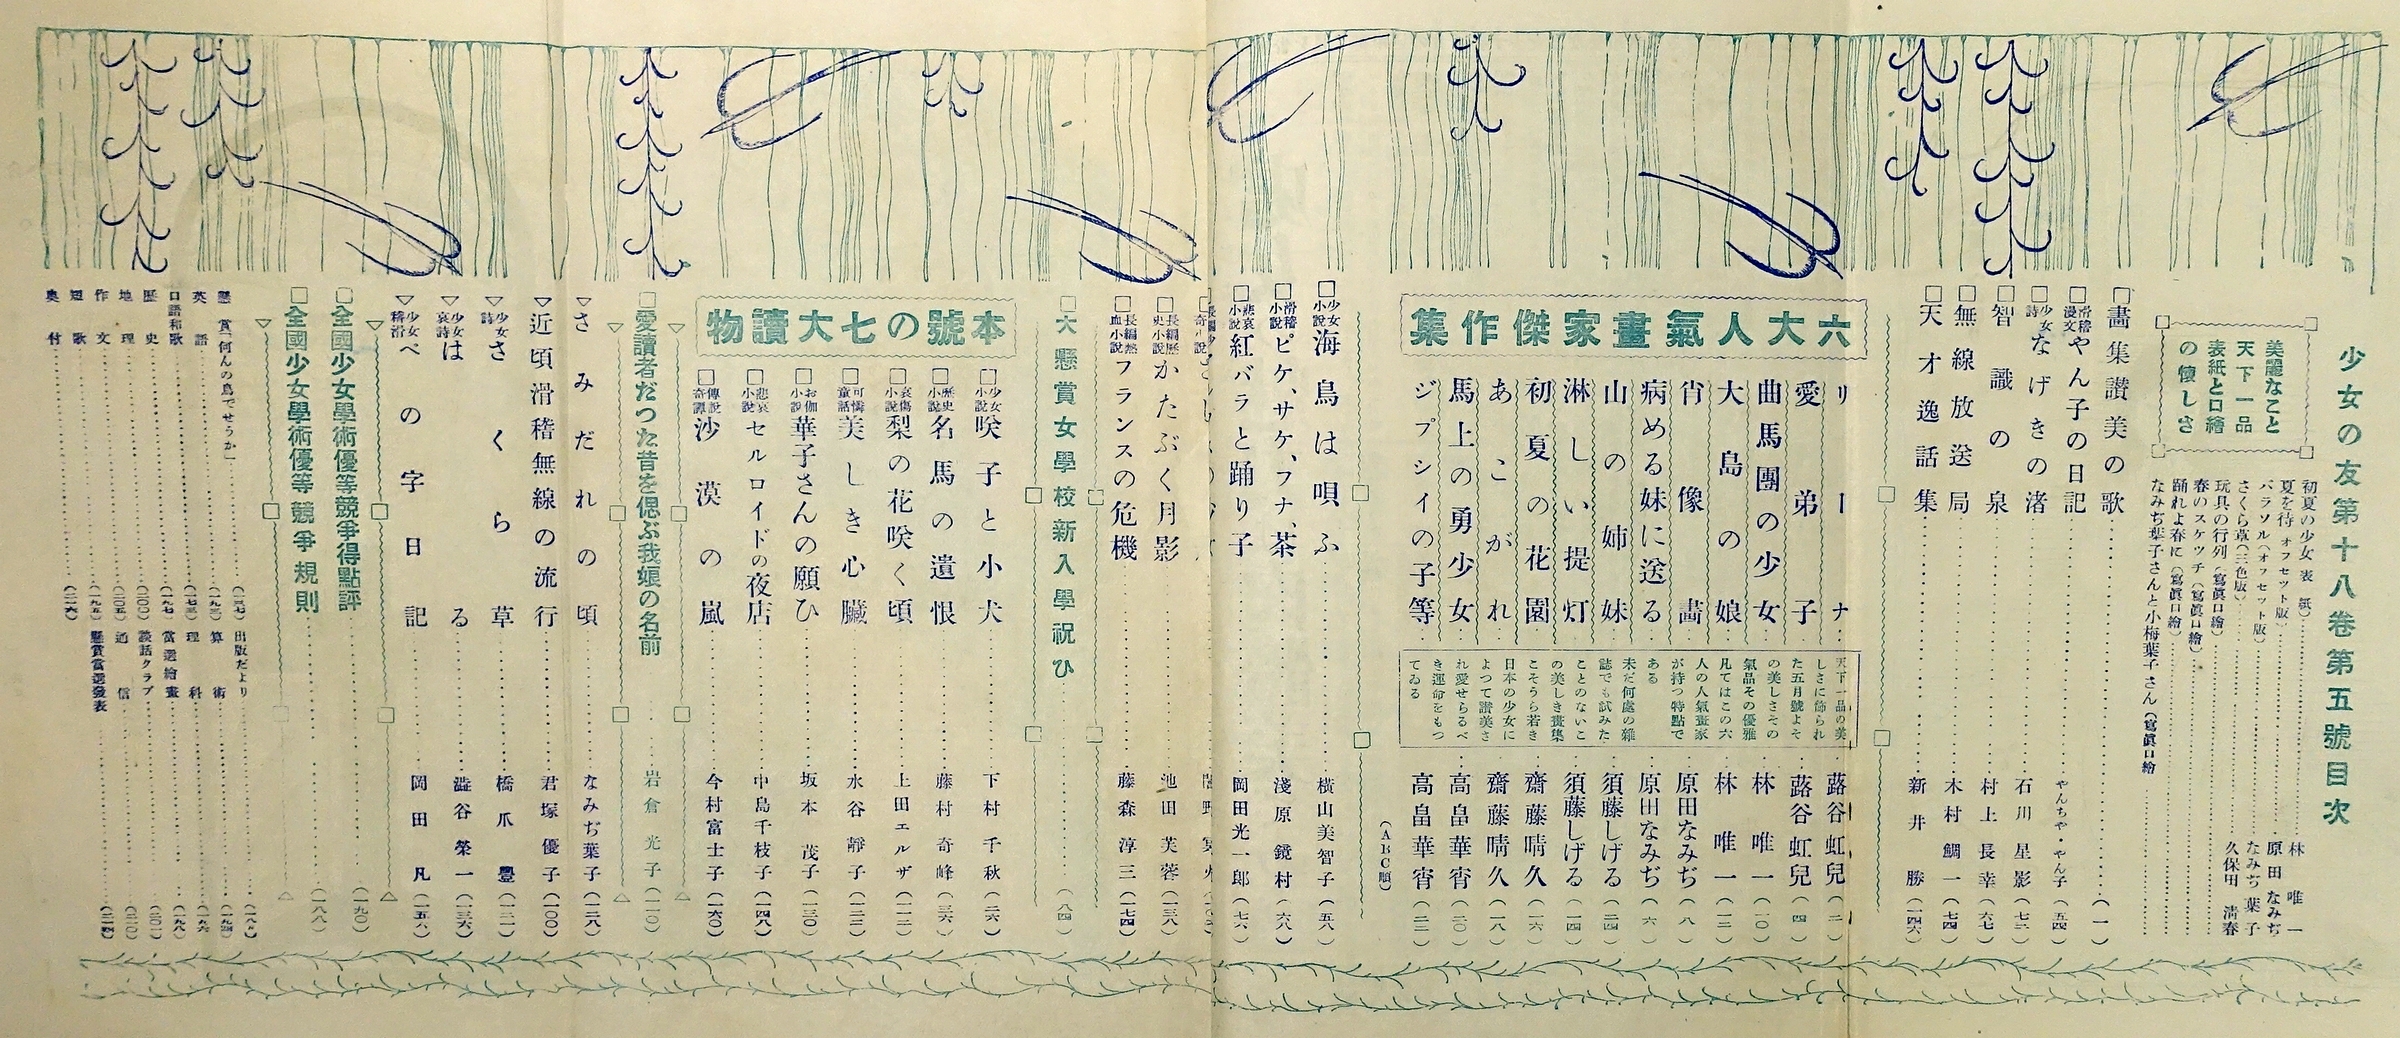 少女の友第十八卷第五號目次
美麗なこと
天下一品
表紙と口繪
の懷しさ
初夏の少女(表紙)……林唯一
夏を待つ(オフセット版)……原田なみぢ
パラソル(オフセット版)……なみぢ葉子
さくら草(三色版)……久保田清春
玩具の行列(寫眞口繪)
春のスケッチ(寫眞口繪)
踊れよ春に(寫眞口繪)
なみぢ葉子さんと小梅葉子さん(寫眞口繪)
□畵集讃美の歌……(一)
□滑稽漫文 やん子の日記……やんちや・やん子(五四)
□少女詩 なげきの渚……石川星影(七三)
□智識の泉……村上長幸(六七)
□無線放送局……木村鯛一(七四)
□天才逸話集……新井勝(一四六)
六大人氣畫家傑作集
リーナ……蕗谷虹兒(二)
愛弟子……蕗谷虹兒(四)
曲馬團の少女……林唯一(一〇)
大島の娘……林唯一(一二)
肖像畵……原田なみぢ(八)
病める妹に送る……原田なみぢ(六)
山の姉妹……須藤しげる(二四)
淋しい提灯……須藤しげる(一四)
初夏の花園……齋藤晴久(一六)
あこがれ……齋藤晴久(一八)
馬上の勇少女……高畠華宵(二〇)
ジプシイの子等……高畠華宵(二二)
(ABC順)
天下一品の美
しさに飾られ
た五月號よそ
の美しさその
氣品その優雅
凡てはこの六
人の人氣畫家
が持つ特點で
ある
未だ何處の雜
誌でも試みた
ことのないこ
の美しき畫集
こそうら若き
日本の少女に
よつて讃美さ
れ愛せらるべ
き運命をもつ
てゐる
□少女小說 海鳥は唄ふ……橫山美智子(五八)
□滑稽小說 ピケ、サケ、フナ、茶……淺原鏡村(六八)
□悲哀小說 紅バラと踊り子……岡田光一郎(七六)
□長編歷史小說 かたぶく月影……池田芙蓉(一三八)
□長編熱血小說 フランスの危機……藤森淳三(一七四)
□大懸賞女學校新入學祝ひ……(八四)
本號の七大讀物
□少女小說 咲子と小犬……下村千秋(二六)
□歷史小說 名馬の遺恨……藤村奇峰(三六)
□哀傷小說 梨の花咲く頃……上田エルザ(一一二)
□可憐童話 美しき心臟……水谷靜子(一二二)
□お伽小說 華子さんの願ひ……坂本茂子(一三〇)
□悲哀小說 セルロイドの夜店……中島千枝子(一四八)
□傳說奇譚 沙漠の嵐……今村富士子(一六〇)
□愛讀者だつた昔を偲ぶ我娘の名前……岩倉光子(一一〇)
▽さみだれの頃……なみぢ葉子(一二八)
▽近頃滑稽無線の流行……君塚優子(一〇〇)
▽少女詩 さくら草……橋爪豐(一二一)
▽少女哀詩 はる……澁谷榮一(一三六)
▽少女滑稽 ペの字日記……岡田凡(一五六)
□全國少女學術優等競爭得點評……(一九〇)
□全國少女學術優等競爭規則……(一八八)
懸賞「何んの鳥でせうか」
英語
口語和歌
歷史
地理
作文
短歌
奧付
出版だより
算術
理科
當選繪畫
談話クラブ
通信
懸賞當選發表